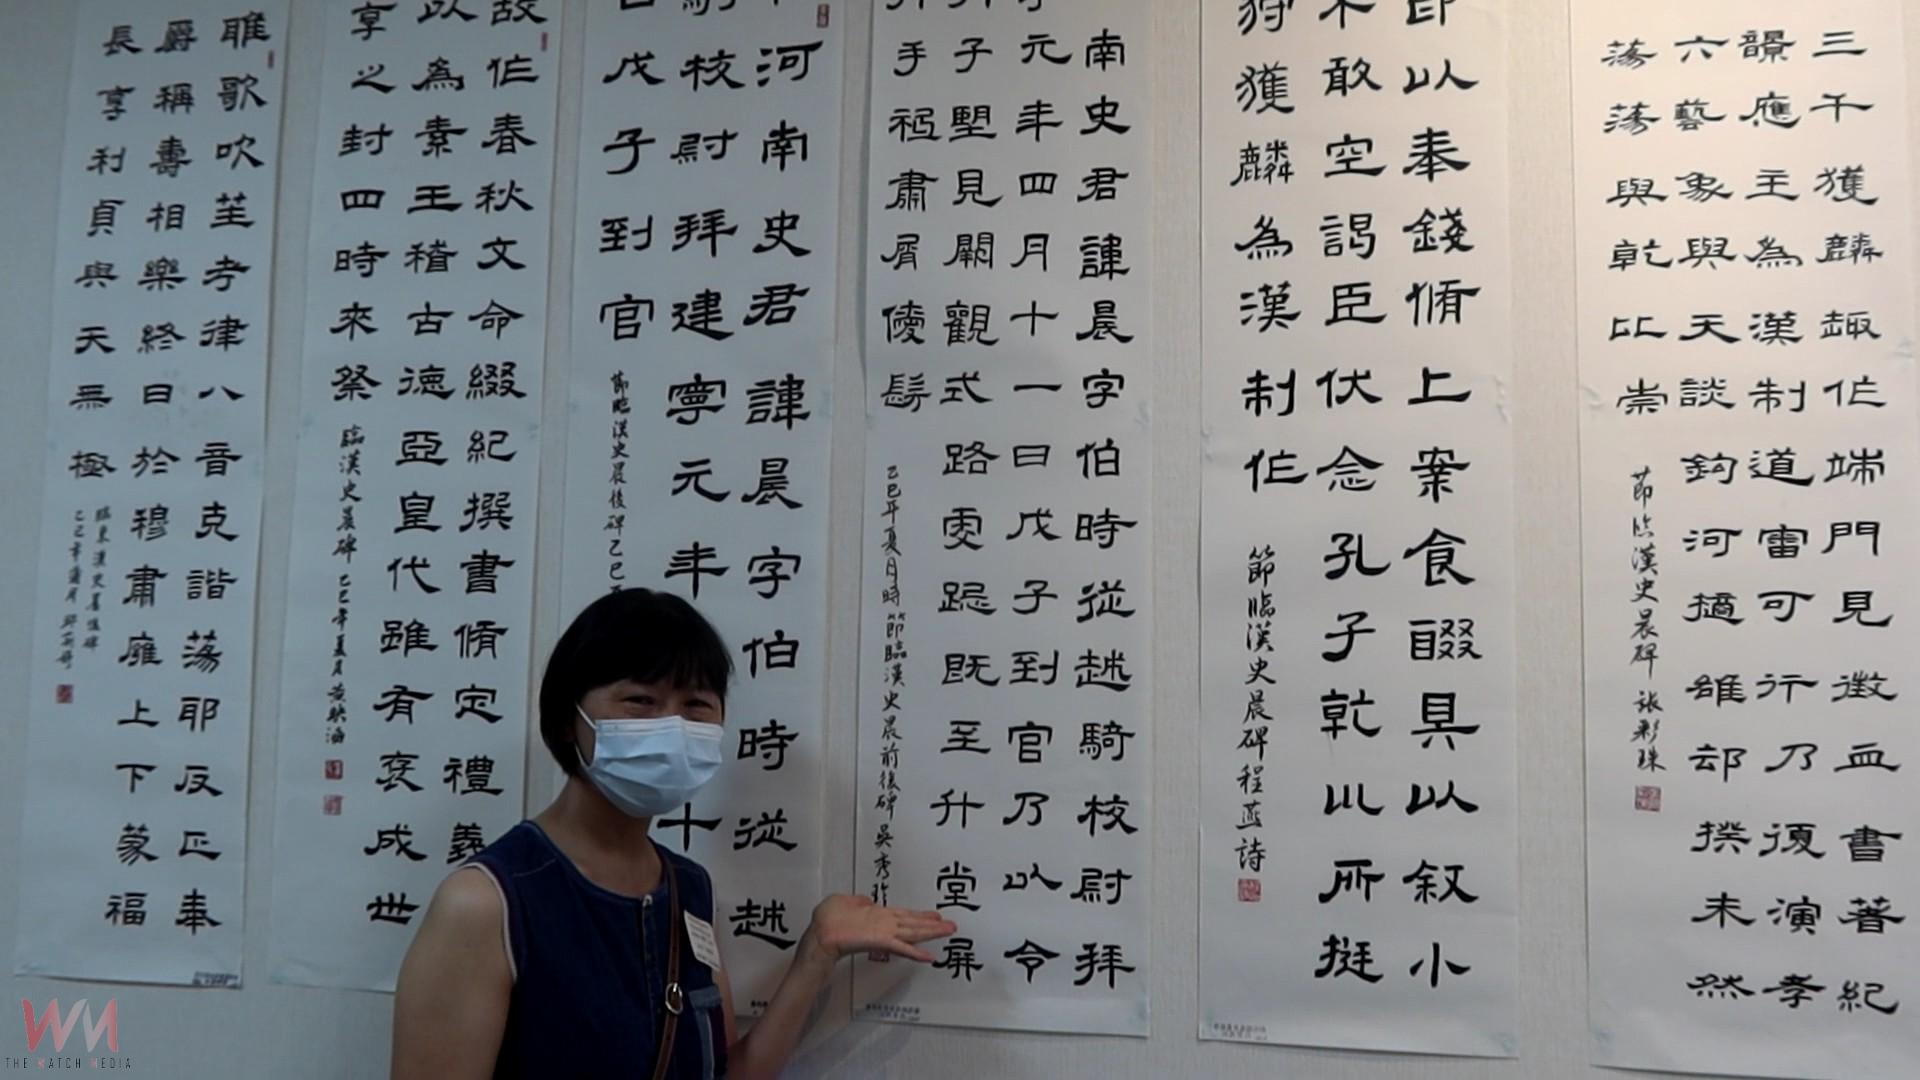 三千獲麟趣作端門見徵血書著紀
韻應主為漢制道審可行乃復演孝
六藝象與天談鈎河擿雒却揆未然
蕩蕩與乾比崇
節臨漢史晨碑 張彩珠
即以奉錢脩上案食醊具以叙小
不敢空謁臣伏念孔子乾以所挺
狩獲麟為漢制作
節臨漢史晨碑程燕詩
南史君諱晨字伯時從越騎校尉拜
元年四月十一日戊子到官乃以令
升子塈見闕觀式路虔跽既至升堂屏
手袛肅屑僾髣
乙巳年夏月時節臨漢史晨前後碑 吳秀
河南史君諱晨字伯時從越
校尉拜建寧元年 十
戊子到官
節臨漢史晨後碑乙巳
故作春秋文命綴紀撰書脩定禮義
以為素王稽古德亞皇代雖有褒成世
享之封四時來祭
臨漢史晨碑 乙巳年夏月 黃映
雅歌吹笙考律八音克諧蕩耶反正奉
爵稱壽相樂終日於穆肅雍上下蒙福
長享利貞與天無極
臨東漢史晨後碑
乙巳年蒲月
WM
THE WATCH MEDIA